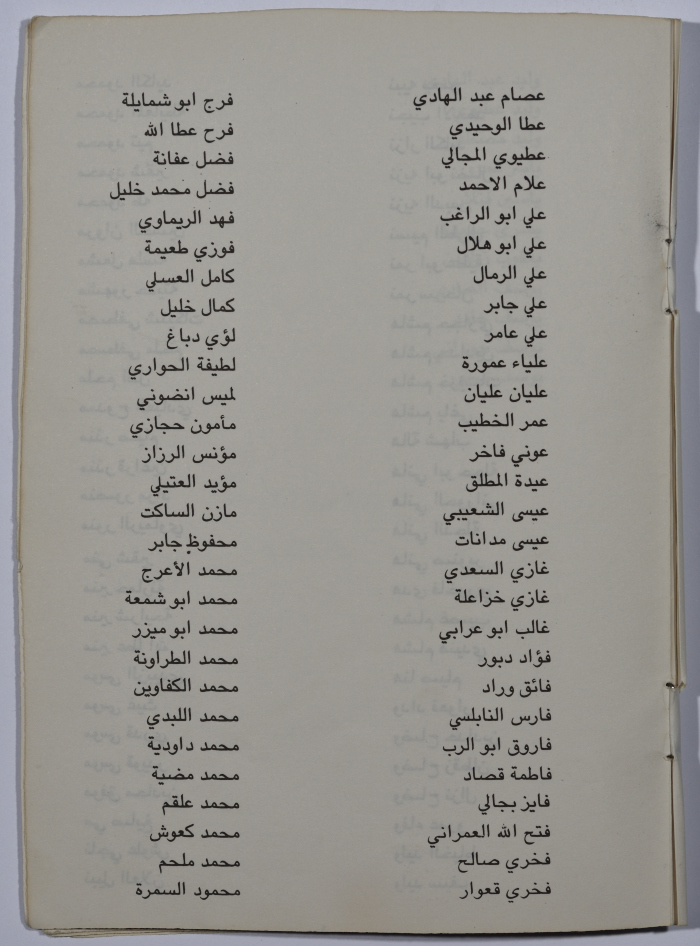 عصام عبد الهادي
عطا الوحيدي
عطيوي المجالي
علام الاحمد
علي ابو الراغب
علي ابو هلال
علي الرمال
علي جابر
علي عامر
علياء عمورة
عليان عليان
عمر الخطيب
عوني فاخر
عيدة المطلق
عيسى الشعيبي
عيسى مدانات
غازي السعدي
غازي خزاعلة
غالب ابو عرابي
فؤاد دبور
فائق وراد
فارس النابلسي
فاروق ابو الرب
فاطمة قصاد
فايز بجالي
فتح الله العمراني
فخري صالح
فخري قعوار
فرج ابو شمايلة
فرح عطا الله
فضل عفانة
فضل محمد خليل
فهد الريماوي
فوزي طعيمة
كامل العسلي
كمال خليل
لؤي دباغ
لطيفة الحواري
لميس انضوني
مأمون حجازي
مؤنس الرزاز
مؤيد العتيلي
مازن الساكت
محفوظ جابر
محمد الأعرج
محمد ابو شمعة
محمد ابو ميزر
محمد الطراونة
محمد الكفاوين
محمد اللبدي
محمد داودية
محمد مضية
محمد علقم
محمد كعوش
محمد ملحم
محمود السمرة